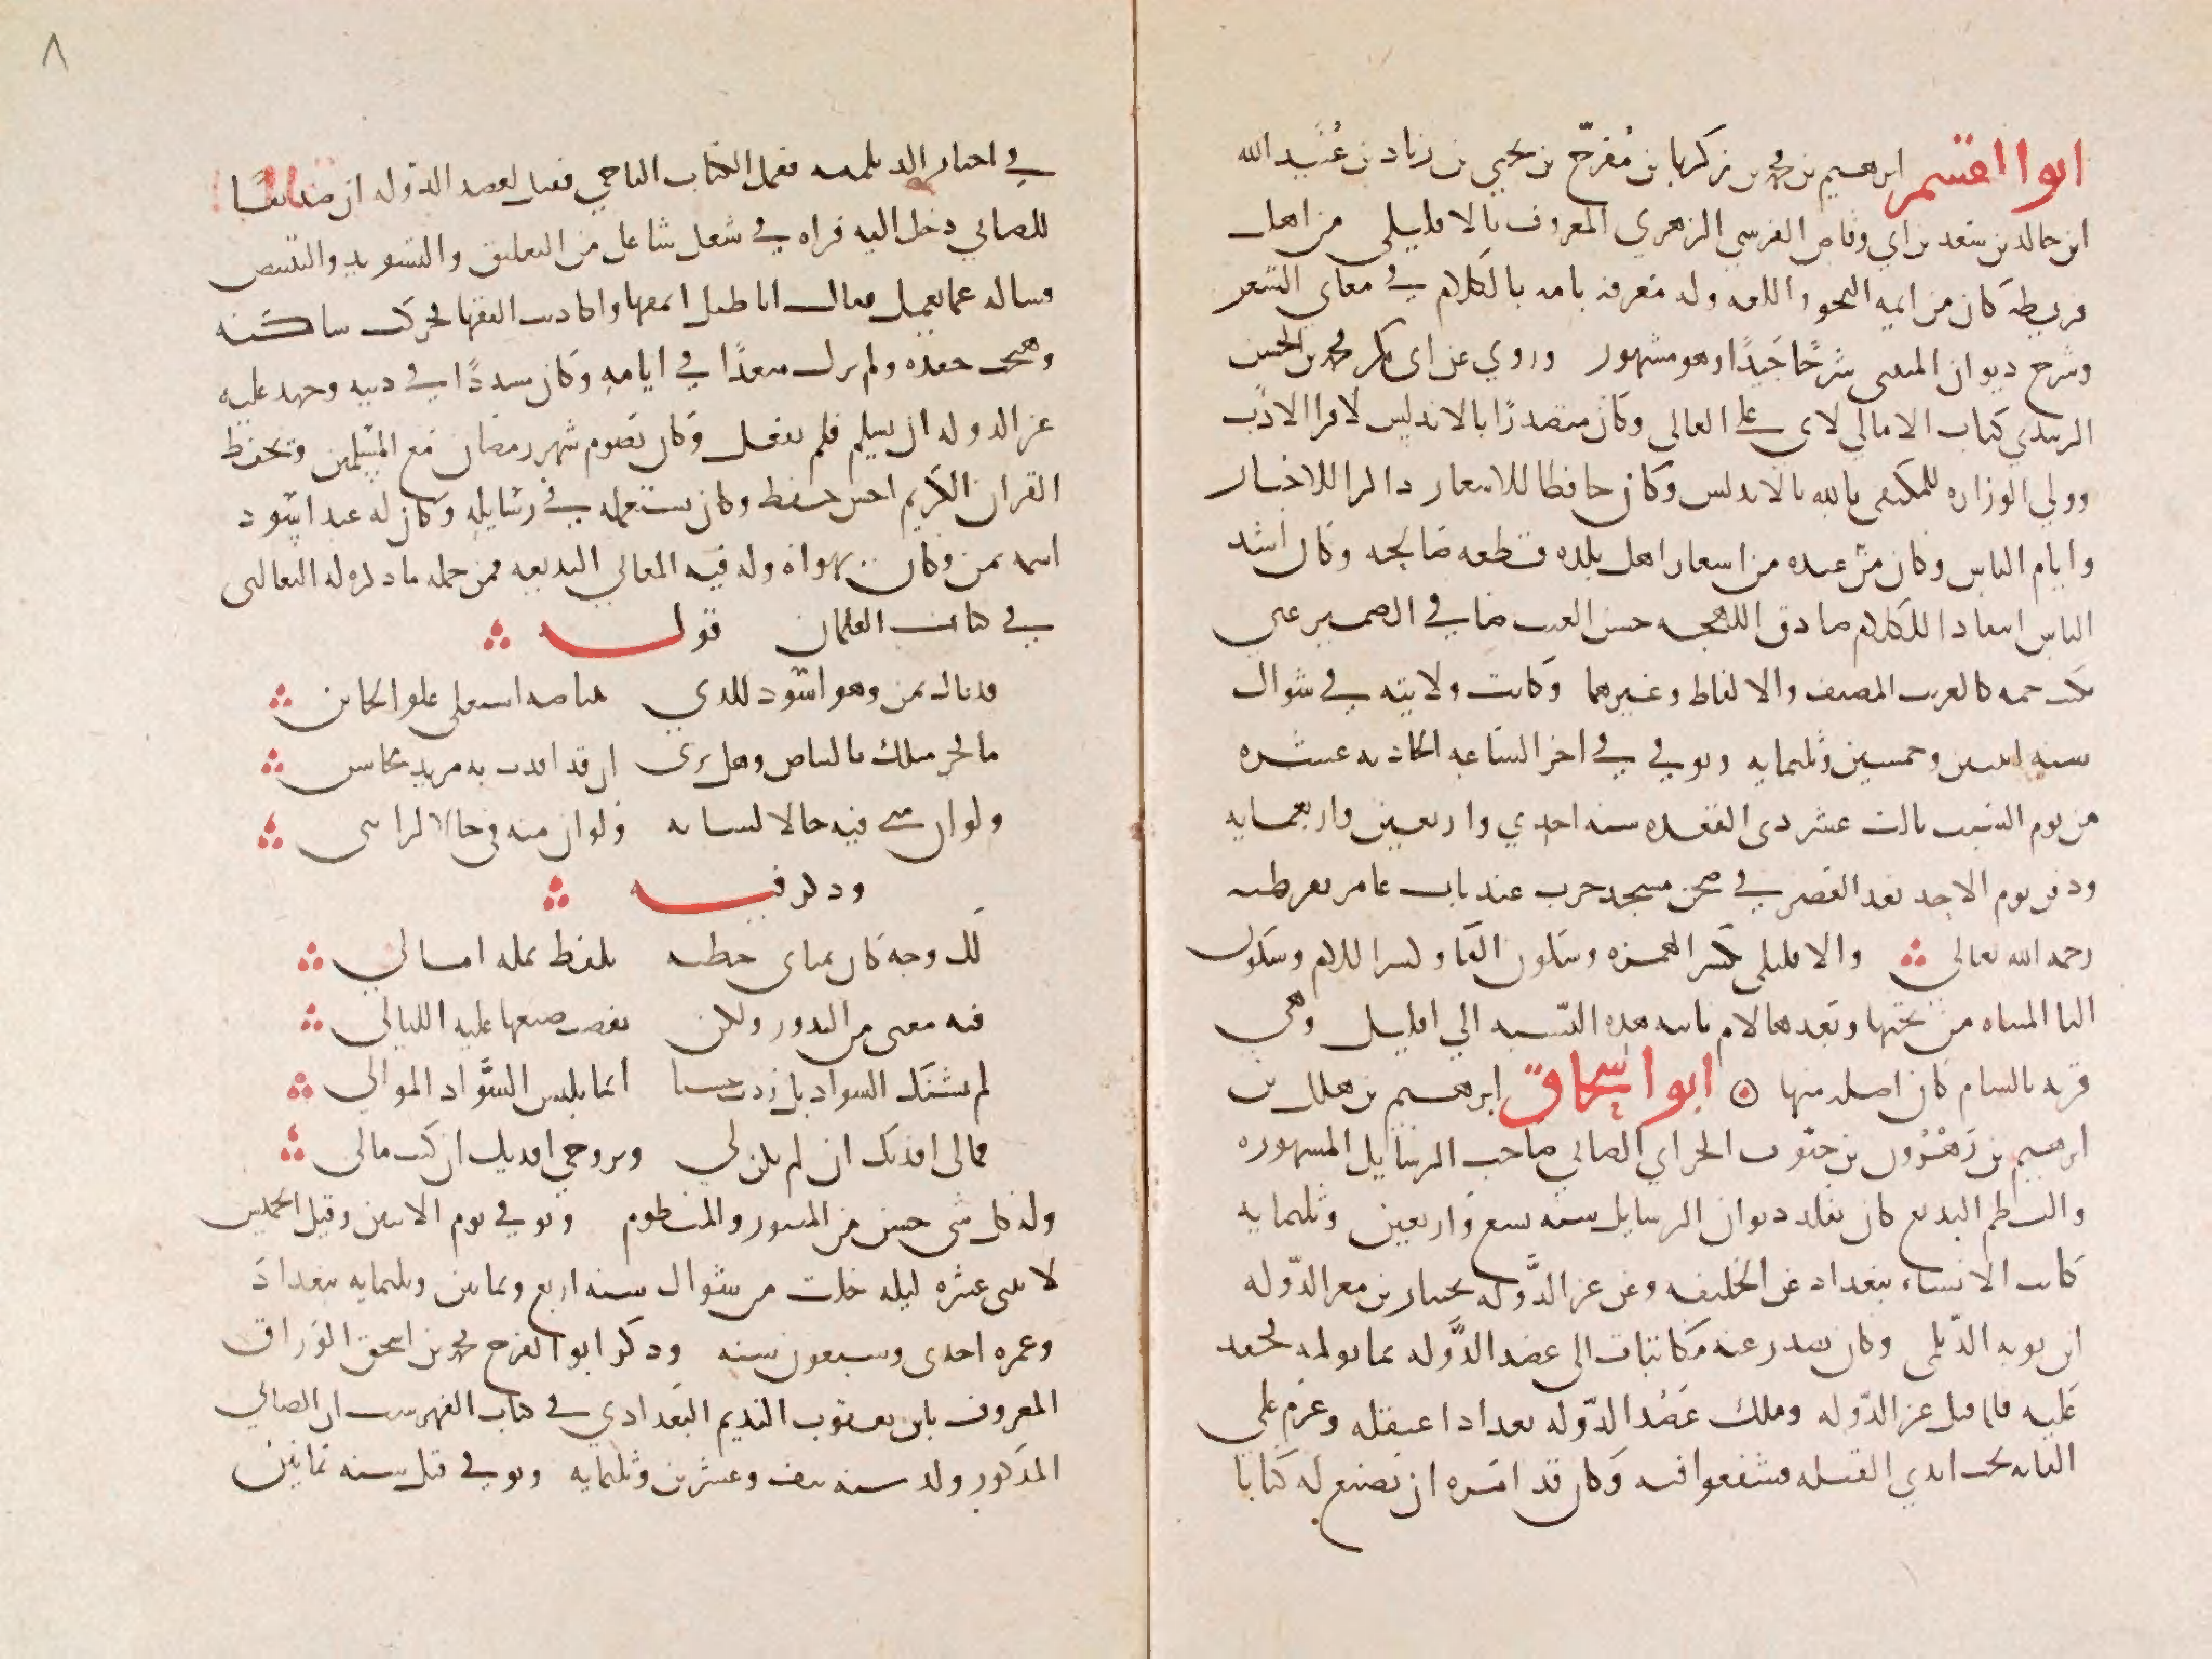 ابوا القسم ابرهيم بن محمد بن زكريا بن مفرّج بن يحيى بن زياد بن عُبيد الله
ابن خالد بن سعد بن ابي وقاص القرشي الزهري المعروف بالافليلي من اهل
قرطبة كان من ايمه النحو واللغه وله معرفه تامه بالكلام في معاني الشعر
وشرح ديوان المتنبي شرحًا جيدًا وهو مشهور وروي عن ابي بكر محمد بن الحسن
الزبيدي كتاب الامالي لابي علي القالي وكان متصدرًا بالاندلس لاقرا الادب
وولي الوزاره للمكتفي بالله بالاندلس وكان حافظا للاشعار ذاكرا للاخبار
وايام الناس وكان عنده من اشعار اهل بلده قطعه صالحه وكان اشد
الناس انتقادا للكلام صادق اللهجه حسن الغيب صافي الضمير عني
بكتب جمه كالغريب المصنف والالفاظ وغيرهما وكانت ولايته في شوال
سنه اثنين وخمسين وثلثمايه وتوفي في اخر الساعه الحاديه عشره
من يوم السبت ثالث عشر ذي القعده سنه احدي واربعين واربعمايه
ودفن يوم الاحد بعد العصر في صحن مسجد خرب عند باب عامر بقرطبه
رحمه الله تعالى والافليلي بكسر الهمزه وسكون الفا وكسر اللام وسكون
اليا المثناه من تحتها وبعدها لام ثانيه هذه النسبه الي افليل وهي
قريه بالشام كان اصله منها ابوا اسحاق ابرهيم بن هلال بن
ابرهيم بن زهرون بن حبون الحراني الصابي صاحب الرسايل المشهوره
والنظم البديع كان تقلد ديوان الرسايل سنه تسع واربعين وثلثمايه
كاتب الانشاء ببغداد عن الخليفه وعن عز الدّوله بختيار بن معز الدّوله
ابن بويه الديلمي وكان يصدر عنه مكاتبات الى عضد الدّوله بما يولمه فحقد
عليه فلما قتل عز الدّوله وملك عَضُد الدّوله بغداد اعتقله وعزم على
القايه تحت ايدي الفيله فشفعوا فيه وكان قد امره ان يصنع له كتابا
٨
في اخبار الديلميه فعمل الكتاب التاجي فقيل لعضد الدّوله ان صديقًا
للصابي دخل اليه فراه في شغل شاغل من التعليق والتسويد والتبييض
فساله عما يعمل فقال اباطيل انمقها واكاذيب الفقها فحركت ساكنه
وهيجت حقده ولم يزل مبعدًا في ايامه وكان متشددًا في دينه وجهد عليه
عز الدوله ان يسلم فلم يفعل وكان يصوم شهر رمضان مع المسلمين ويحفظ
القران الكريم احسن حفظ وكان يستعمله في رسايله وكان له عبد اسود
اسمه يمن وكان يهواه وله فيه المعاني البديعه فمن جمله ما ذكره له الثعالبي
في كتاب الغلمان قوله
قد قال يمن وهو اسود للذي ببياضه استعلى علو الخاين
ما فخر وجهك بالبياض وهل ترى ان قد افدت به مزيد محاسن
ولو ان مني فيه خالا لشانه ولو ان منه في خالا لزانني
وذكر فيه
لك وجه كان يمناي خطته بلفظ تمله امالي
فيه معنى من البدور ولكن نفضت صبغها عليه الليالي
لم يشنك السواد بل زدت حسنا انما يلبس السّواد الموالي
فمالي افديك ان لم تكن لي وبروحي افديك ان كنت مالي
وله كل شي حسن من المنثور والمنظوم وتوفي يوم الاثنين وقيل الخميس
لاثنى عشره ليله خلت من شوال سنه اربع وثمانين وثلثمايه ببغداد
وعمره احدى وسبعون سنه وذكر ابوا الفرج محمد بن اسحق الورّاق
المعروف بابن يعقوب النديم البغدادي في كتاب الفهرست ان الصابي
المذكور ولد سنه نيف وعشرين وثلثمايه وتوفي قبل سنه ثمانين